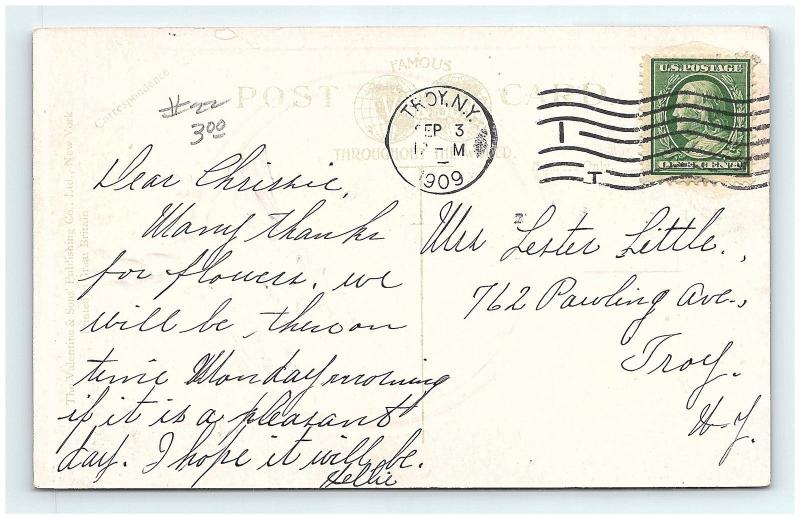 FAMOUS
POST CARD
THROUGHOUT THE WORLD.
Correspondence
#22
300
The Valentine & Sons' Publishing Co., Ltd., New York
Printed in Great Britain
TROY, N.Y.
SEP 3
M
1909
T
U.S. POSTAGE
ONE CENT
Dear Chrissie,
Many thanks
for flowers. we
will be there on
time Monday morning
if it is a pleasant
day. I hope it will be.
Nellie
Mrs Lester Little.,
762 Pawling Ave.,
Troy.
N.Y.